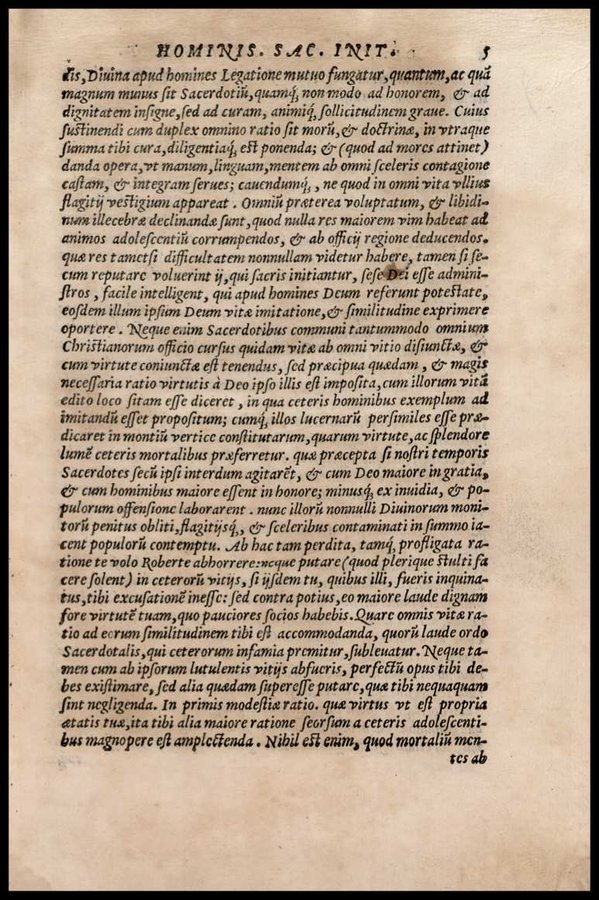 HOMINIS. SAC. INIT. 5
dis, Diuina apud homines Legatione mutuo fungatur, quantum, ac quā
magnum munus sit Sacerdotiū, quamq́, non modo ad honorem, & ad
dignitatem insigne, sed ad curam, animiq́, sollicitudinem graue. Cuius
sustinendi cum duplex omnino ratio sit morū, & doctrinæ, in vtraque
summa tibi cura, diligentiaq́, est ponenda; & (quod ad mores attinet)
danda opera, vt manum, linguam, mentem ab omni sceleris contagione
castam, & integram serues; cauendumq́, , ne quod in omni vita vllius
flagitij vestigium appareat . Omniū præterea voluptatum, & libidi-
num illecebræ declinandæ sunt, quod nulla res maiorem vim habeat ad
animos adolescentiū corrumpendos, & ab officij regione deducendos.
quæ res tametsi difficultatem nonnullam videtur habere, tamen si se-
cum reputare voluerint ij, qui sacris initiantur, sese Dei esse admini-
stros , facile intelligent, qui apud homines Deum referunt potestate,
eosdem illum ipsum Deum vitæ imitatione, & similitudine exprimere
oportere . Neque enim Sacerdotibus communi tantummodo omnium
Christianorum officio cursus quidam vitæ ab omni vitio disiunctæ, &
cum virtute coniunctæ est tenendus, sed præcipua quædam , & magis
necessaria ratio virtutis à Deo ipso illis est imposita, cum illorum vitā
edito loco sitam esse diceret , in qua ceteris hominibus exemplum ad
imitandū esset propositum; cumq́, illos lucernarū persimiles esse præ-
dicaret in montiū vertice constitutarum, quarum virtute, ac splendore
lumē ceteris mortalibus præferretur. quæ præcepta si nostri temporis
Sacerdotes secū ipsi interdum agitarēt, & cum Deo maiore in gratia,
& cum hominibus maiore essent in honore; minusq́, ex inuidia, & po-
pulorum offensione laborarent . nunc illorū nonnulli Diuinorum moni-
torū penitus obliti, flagitijsq́, , & sceleribus contaminati in summo ia-
cent populorū contemptu. Ab hac tam perdita, tamq́, profligata ra-
tione te volo Roberte abhorrere: neque putare (quod plerique stulti fa
cere solent) in ceterorū vitijs, si ijsdem tu, quibus illi, fueris inquina-
tus, tibi excusationē inesse: sed contra potius, eo maiore laude dignam
fore virtutē tuam, quo pauciores socios habebis. Quare omnis vitæ ra-
tio ad eorum similitudinem tibi est accommodanda, quorū laude ordo
Sacerdotalis, qui ceterorum infamia premitur, subleuatur. Neque ta-
men cum ab ipsorum lutulentis vitijs abfueris, perfectū opus tibi de-
bes existimare, sed alia quædam superesse putare, quæ tibi nequaquam
sint negligenda. In primis modestiæ ratio. quæ virtus vt est propria
ætatis tuæ, ita tibi alia maiore ratione seorsium a ceteris adolescenti-
bus magnopere est amplectenda . Nihil est enim, quod mortaliū men-
tes ab